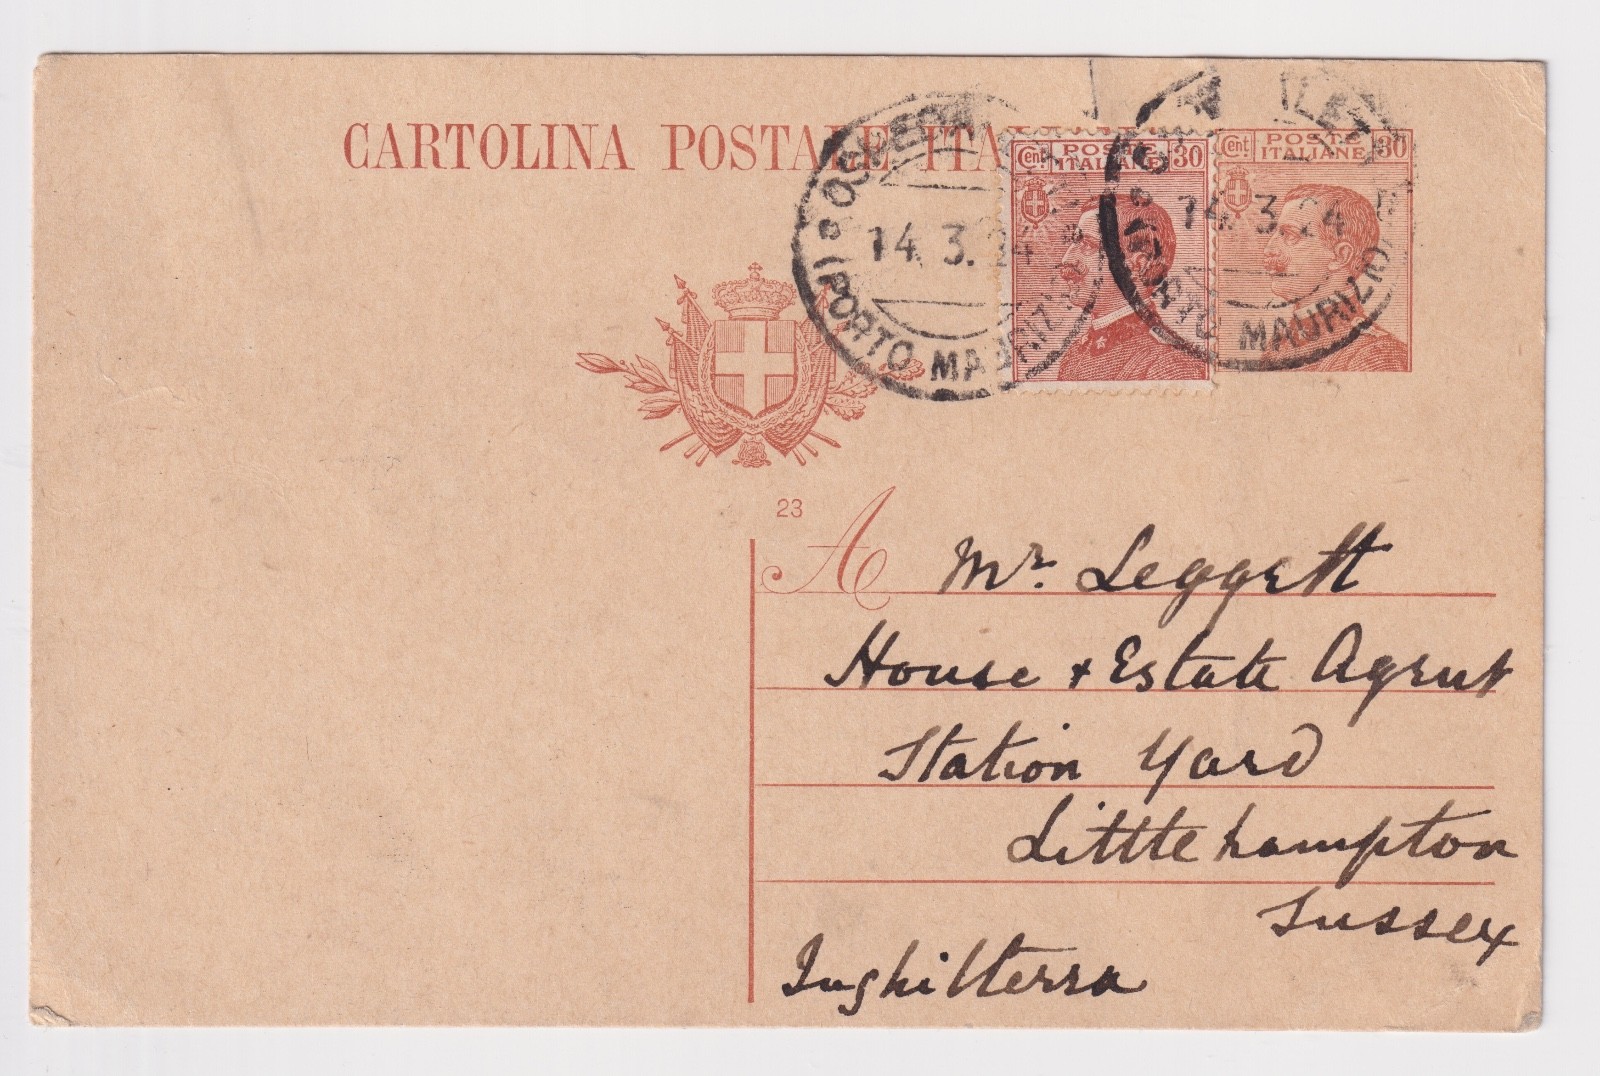 CARTOLINA POSTALE ITA
Cent. POSTE ITALIANE 30
Cent. POSTE ITALIANE 30
14.3.24
PORTO MAURIZIO
14.3.24
PORTO MAURIZIO
23
A Mr. Leggett
House + Estate Agent
Station Yard
Littlehampton
Sussex
Inghilterra